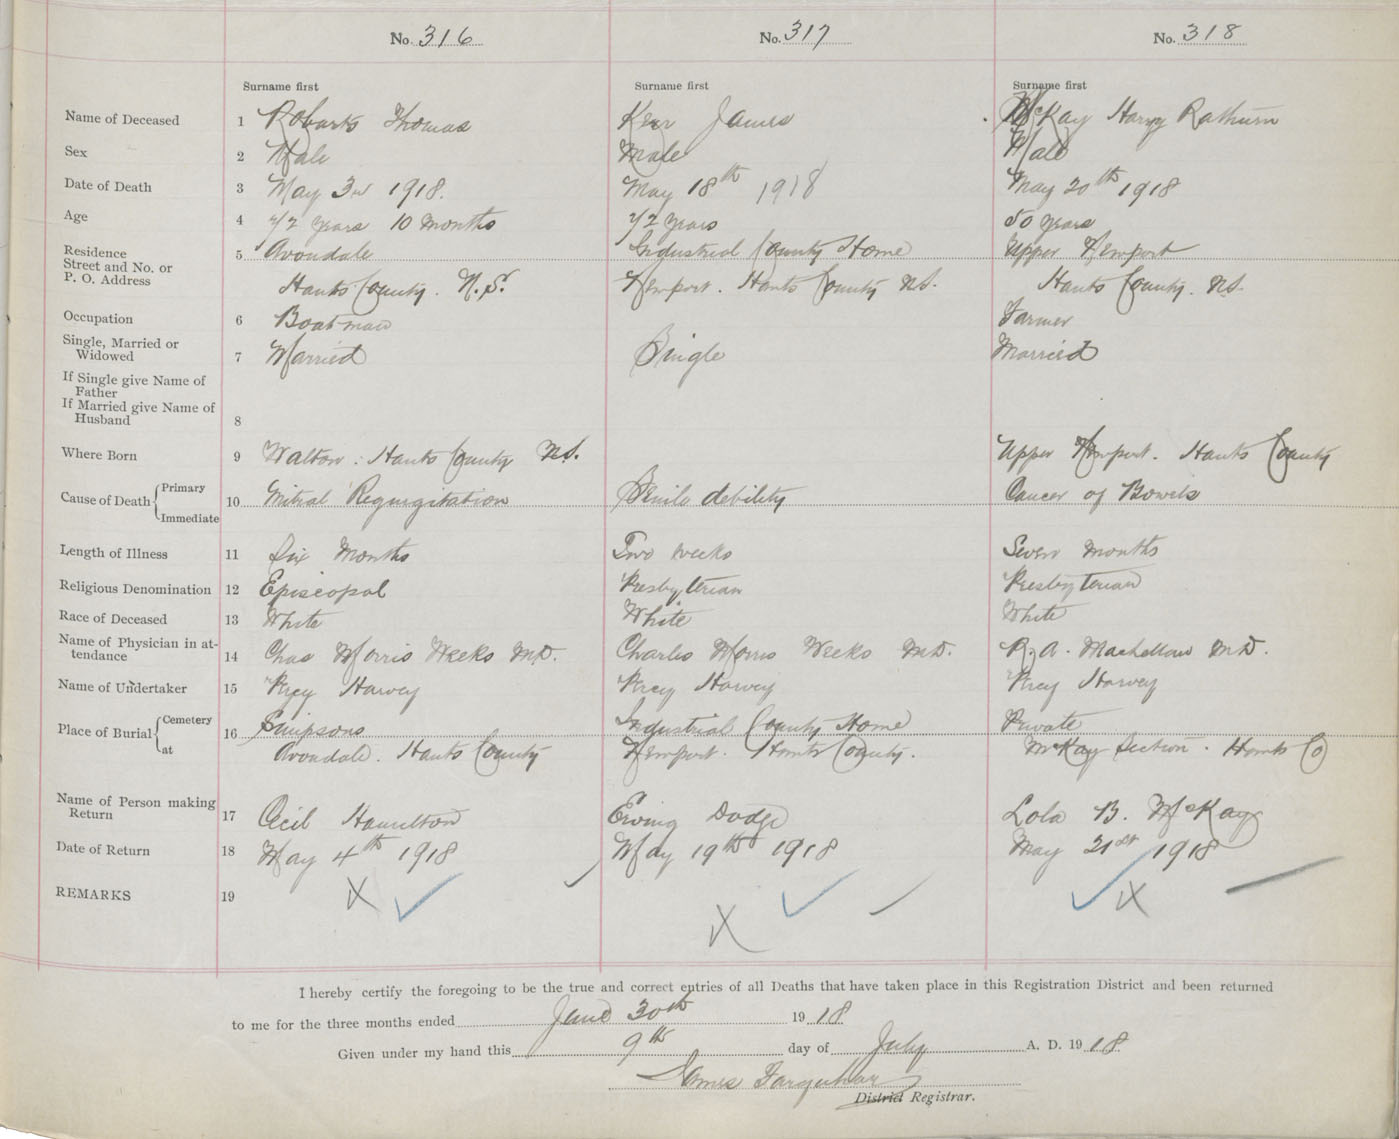 No. 316
No. 317
No. 318
Surname first
Surname first
Surname first
Name of Deceased 1 Robarts Thomas
Kerr James
McKay Harry Rathburn
Sex 2 Male
Male
Male
Date of Death 3 May 3rd 1918.
May 18th 1918
May 20th 1918
Age 4 72 years 10 Months
72 years
50 years
Residence
Street and No. or
P. O. Address
5 Avondale
Hants County. N.S.
Industrial County Home
Newport. Hants County N.S.
Upper Newport
Hants County. N.S.
Occupation 6 Boatman
Farmer
Single, Married or
Widowed
7 Married
Single
Married
If Single give Name of
Father
If Married give Name of
Husband
8
Where Born 9 Walton. Hants County N.S.
Upper Newport. Hants County
Cause of Death Primary
Immediate
10 Mitral Regurgitation
Senile debility
Cancer of Bowels
Length of Illness 11 Six Months
Two weeks
Seven months
Religious Denomination 12 Episcopal
Presbyterian
Presbyterian
Race of Deceased 13 White
White
White
Name of Physician in at-
tendance
14 Chas Morris Weeks M.D.
Charles Morris Weeks M.D.
R. A. MacLellan M.D.
Name of Undertaker 15 Percy Harvey
Percy Harvey
Percy Harvey
Place of Burial Cemetery
at
16 Simpsons
Avondale. Hants County
Industrial County Home
Newport. Hants County.
Private
McKay Section. Hants Co
Name of Person making
Return
17 Cecil Hamilton
Erving Dodge
Lola B. McKay
Date of Return 18 May 4th 1918
May 19th 1918
May 21st 1918
REMARKS 19 X
X
X
I hereby certify the foregoing to be the true and correct entries of all Deaths that have taken place in this Registration District and been returned
to me for the three months ended June 30th 1918
Given under my hand this 9th day of July A. D. 1918
James Farquhar
District Registrar.